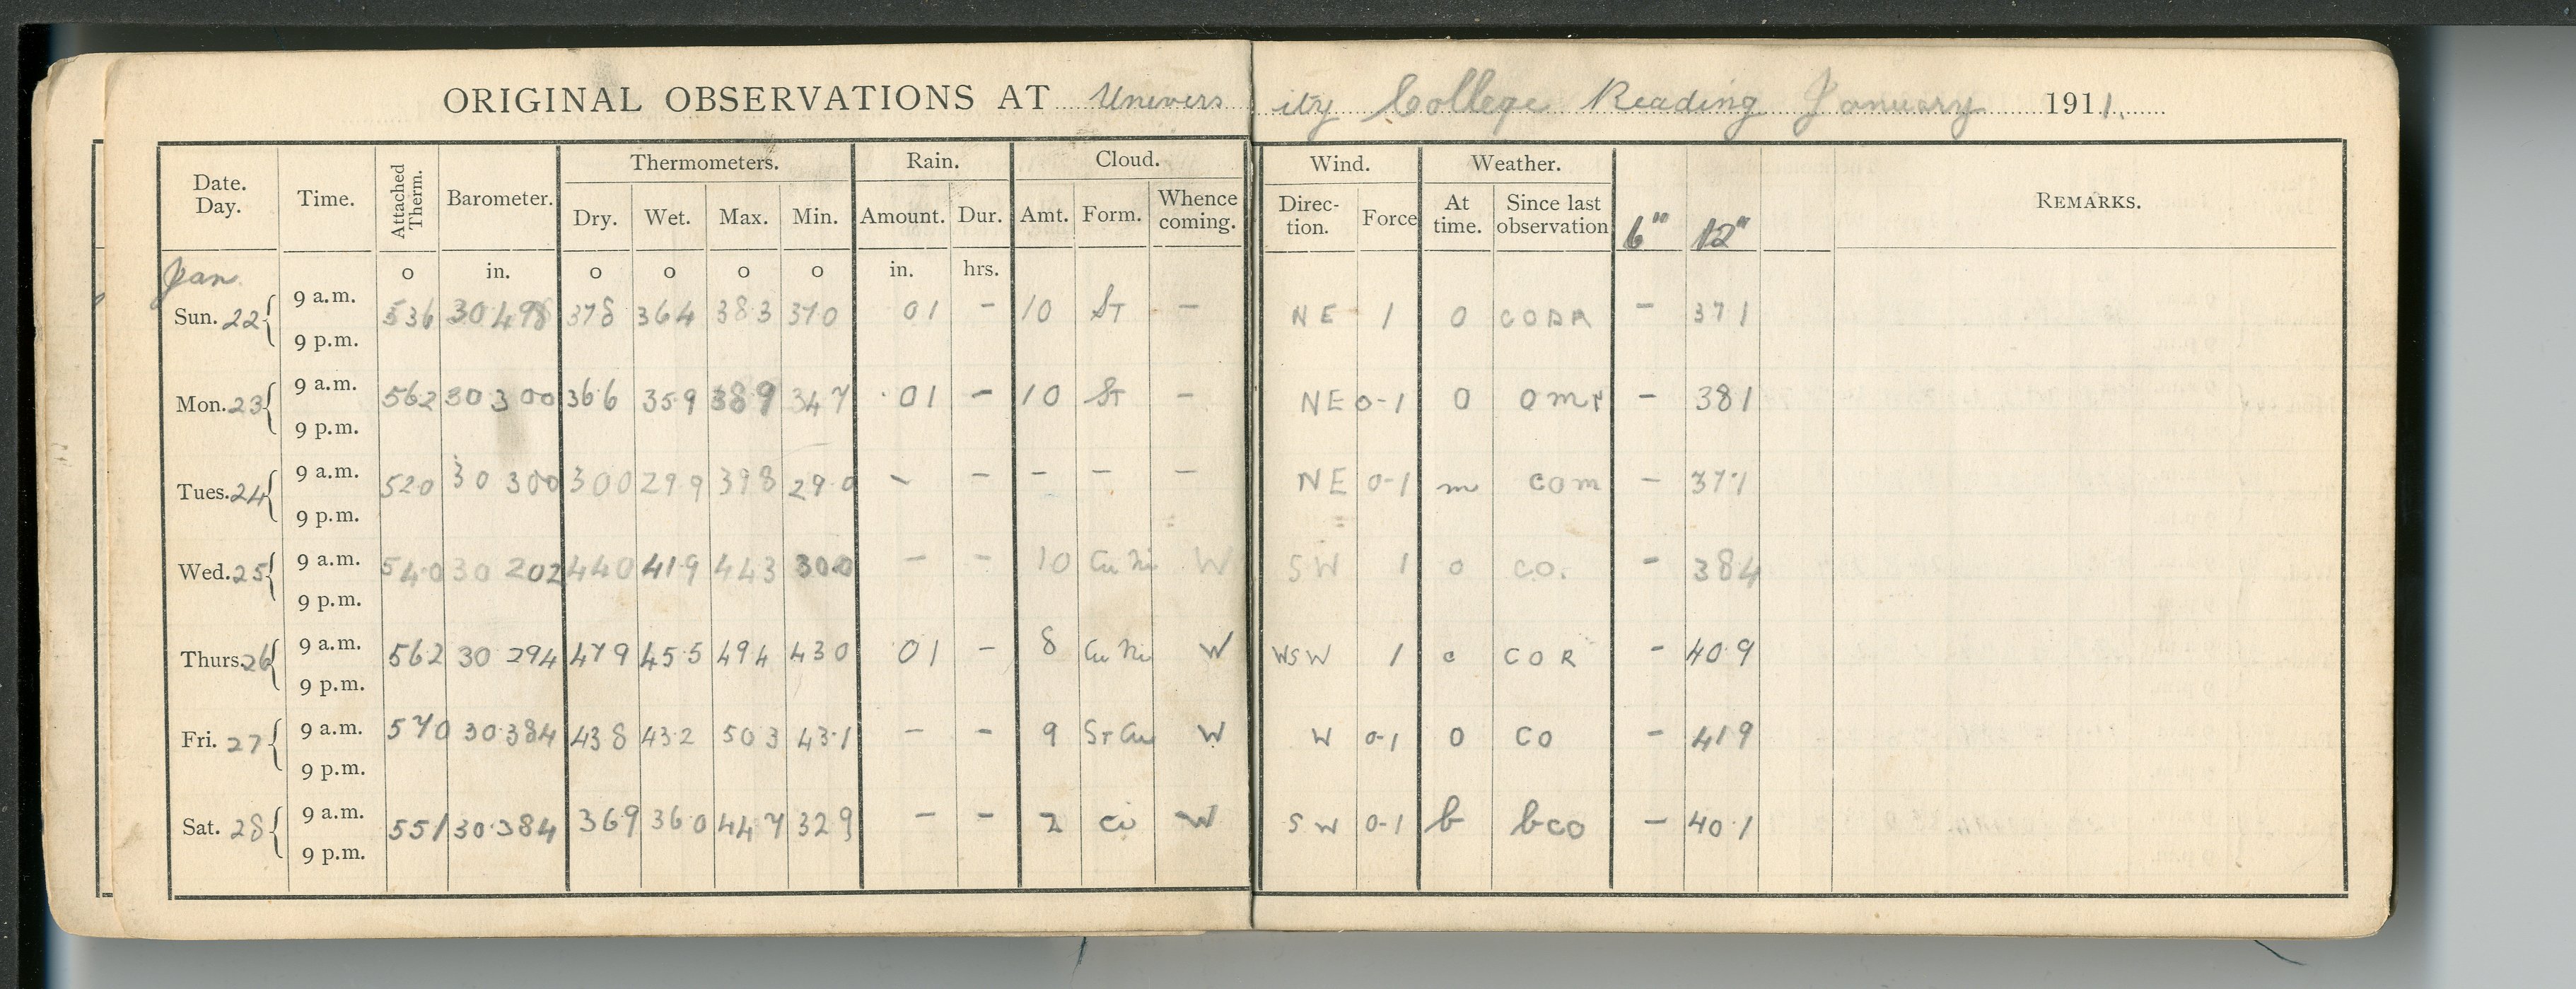 ORIGINAL OBSERVATIONS AT University College Reading January 1911.
Date. Day. Time. Attached Therm. Barometer. Thermometers. Rain. Cloud. Wind. Weather. 6" 12" REMARKS.
Dry. Wet. Max. Min. Amount. Dur. Amt. Form. Whence coming. Direc-tion. Force At time. Since last observation
Jan. o in. o o o o in. hrs.
Sun. 22 9 a.m. 536 30.498 378 364 383 370 01 - 10 St - NE 1 0 - 371
9 p.m.
Mon. 23 9 a.m. 562 30 300 36.6 35.9 389 347 .01 - 10 St - NE 0-1 0 omr - 381
9 p.m.
Tues. 24 9 a.m. 52.0 30 300 300 29.9 398 29.0 - - - - - NE 0-1 m com - 377
9 p.m.
Wed. 25 9 a.m. 54.0 30 202 440 41.9 443 30.0 - - 10 Cu Ni W SW 1 o co. - 384
9 p.m.
Thurs. 26 9 a.m. 562 30 294 479 45.5 494 430 01 - 8 Cu Ni W WSW 1 c COR - 40.9
9 p.m.
Fri. 27 9 a.m. 570 30.384 438 43.2 503 43.1 - - 9 St Cu W W 0-1 0 CO - 419
9 p.m.
Sat. 28 9 a.m. 551 30.384 369 36.0 447 329 - - 2 Ci W SW 0-1 b bco - 40.1
9 p.m.